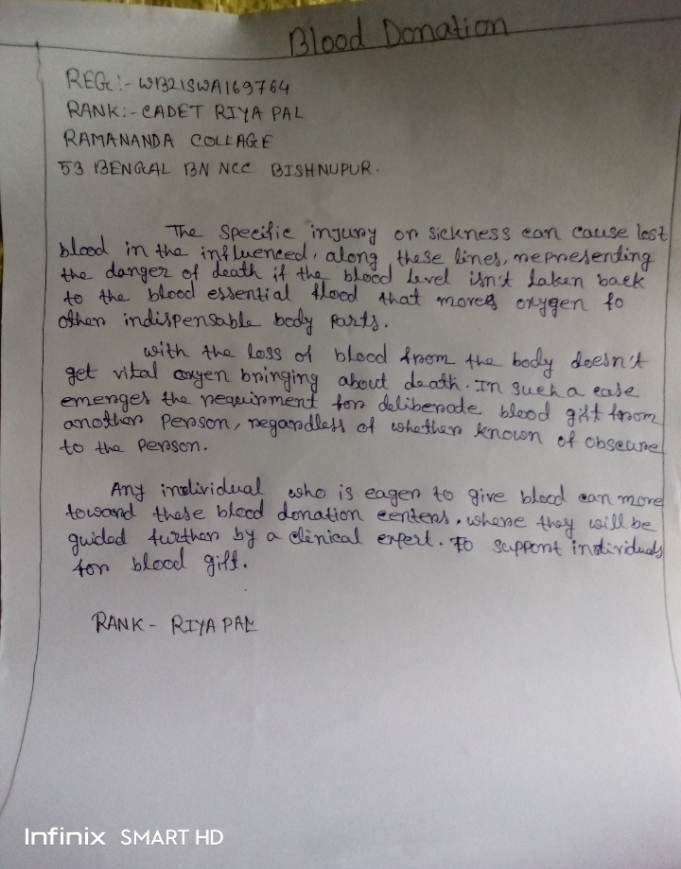 Blood Donation
REG:- WB21SWA169764
RANK:- CADET RIYA PAL
RAMANANDA COLLAGE
53 BENGAL BN NCC BISHNUPUR.
The specific injury or sickness can cause lost
blood in the influenced, along these lines, representing
the danger of death if the blood level isn't taken back
to the blood essential flood that moves oxygen to
other indispensable body parts.
With the loss of blood from the body doesn't
get vital oxyen bringing about death. In such a case
emerges the requirment for deliberade blood gift from
another person, regardless of whether known of obscure
to the person.
Any individual who is eager to give blood can more
toward these blood donation centers, where they will be
guided further by a clinical expert. To support individuals
for blood gift.
RANK - RIYA PAL
Infinix SMART HD